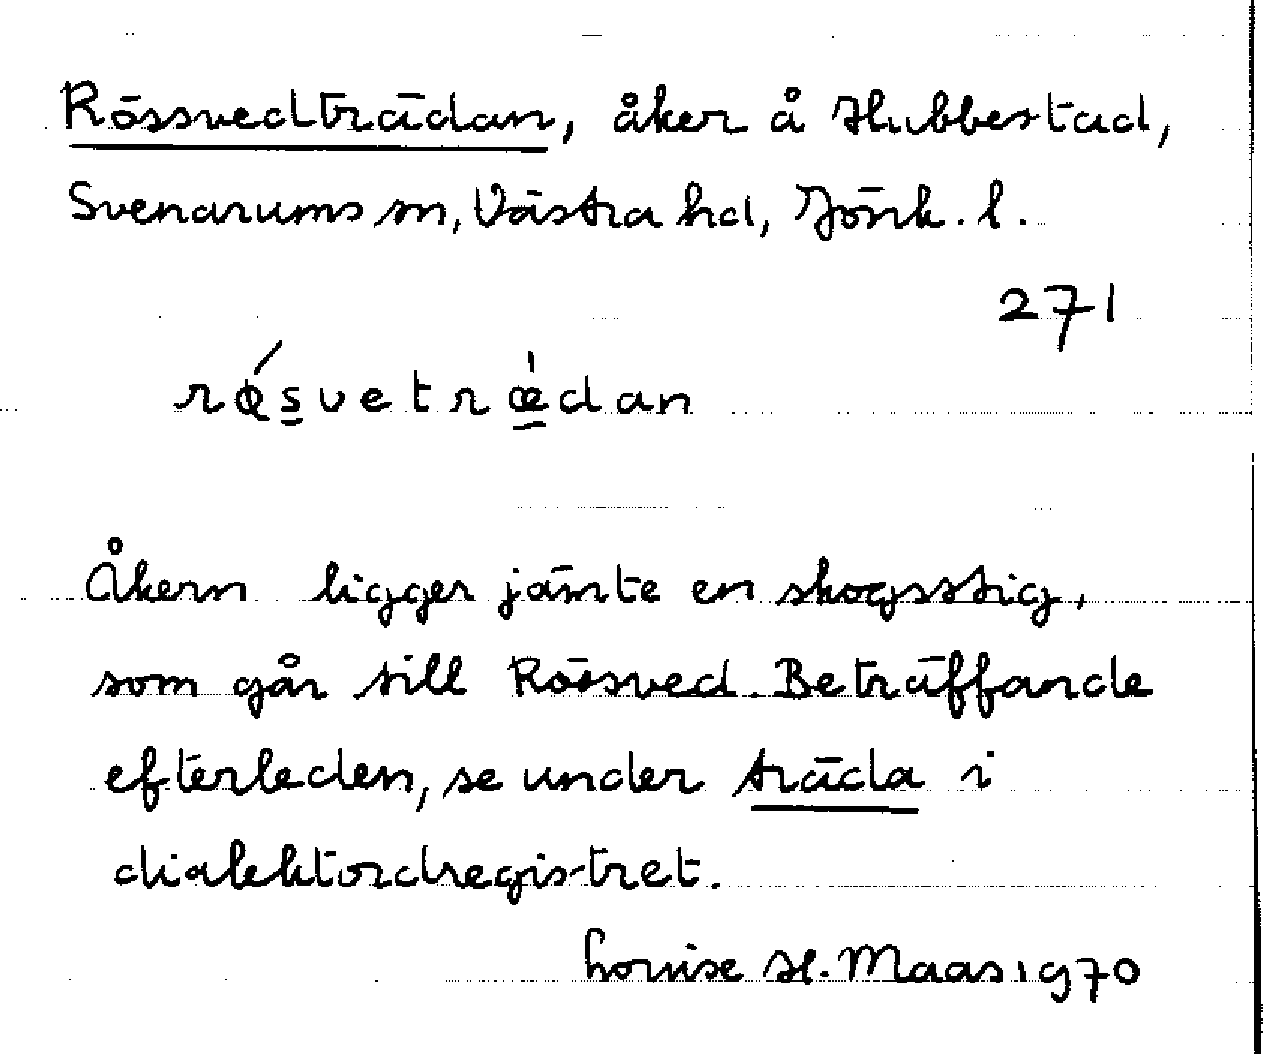 Rössvedträdan, åker å Hubbestad,
Svenarums sn, Västra hd, Jönk. l.
271
résvetrædan
Åkern ligger jämte en skogsstig,
som går till Rössved. Beträffande
efterleden, se under träda i
dialektordregistret.
Louise H. Maas 1970